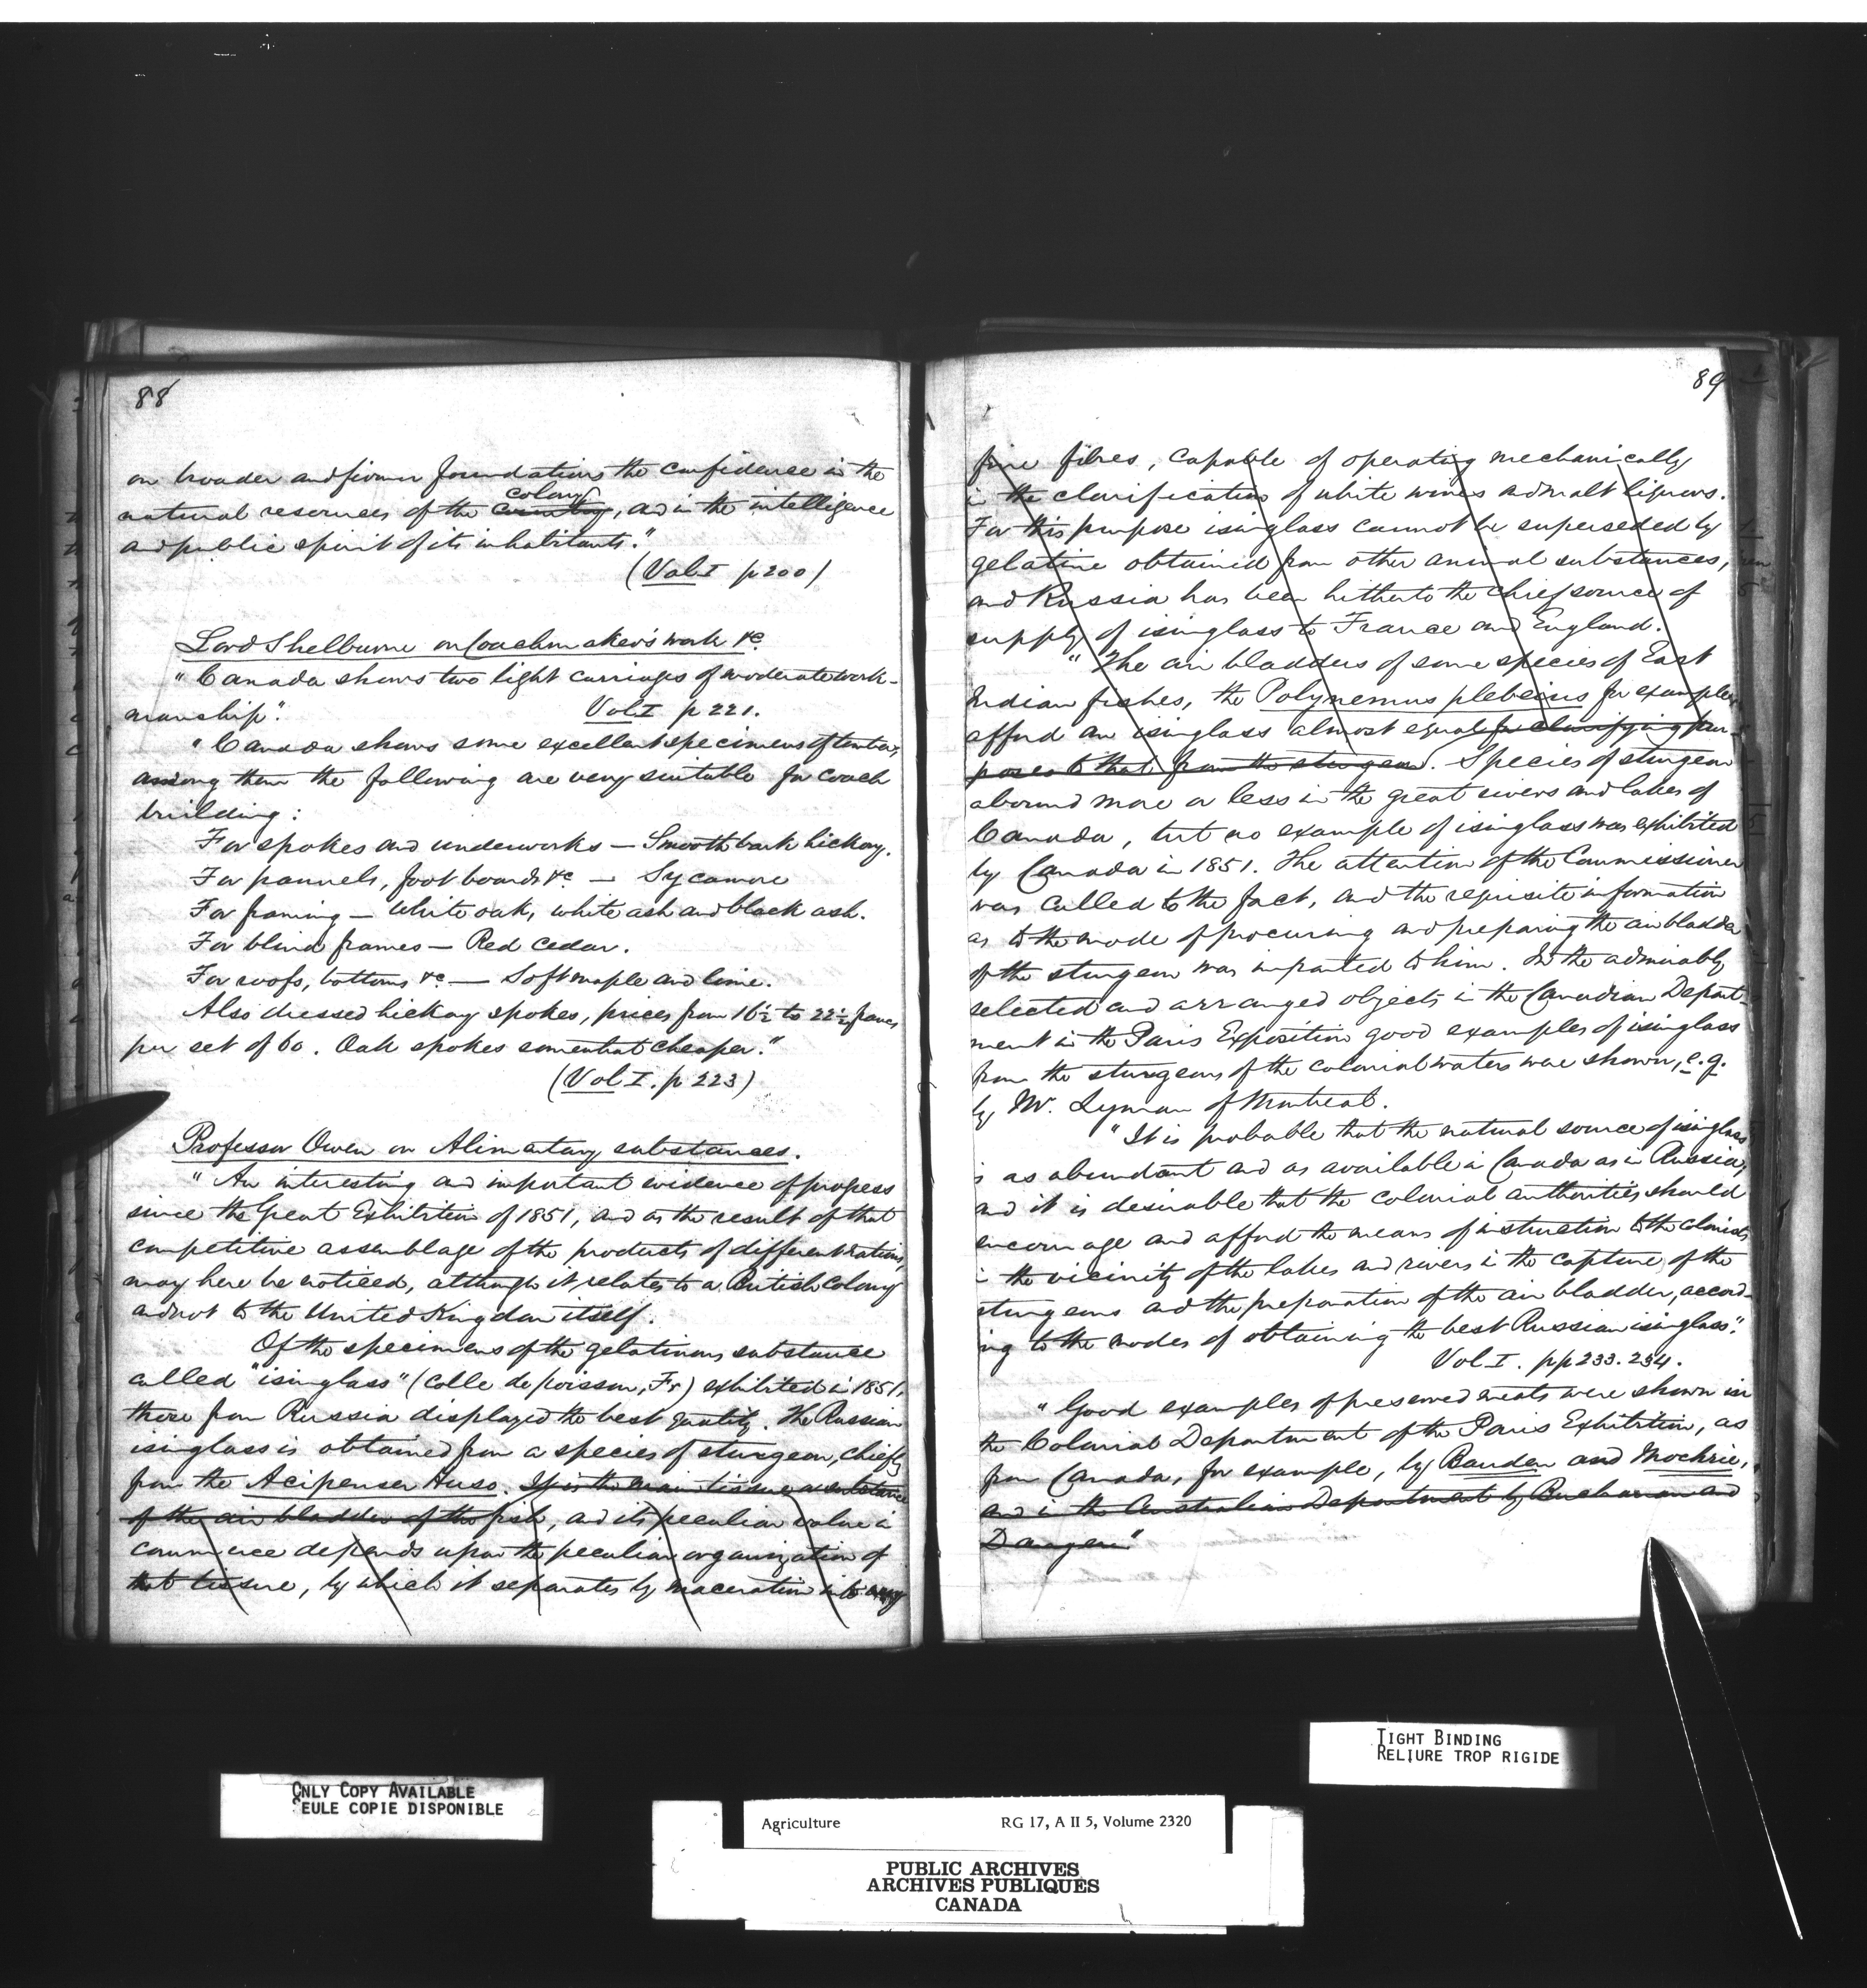 88
on broader and firmer foundations the confidence in the
colony
natural resources of the country, and in the intelligence
and public spirit of its inhabitants."
(Vol I p 200)
Lord Shelburne on Coachmaker's work &c
"Canada shows two light carriages of moderate work-
manship".
Vol I p 221.
"Canada shows some excellent specimens of timber,
among them the following are very suitable for coach
building:
For spokes and underworks — Smooth bark hickory.
For pannels, foot boards &c — Sycamore
For framing — White oak, white ash and black ash.
For blind frames — Red cedar.
For roofs, bottoms &c — Soft maple and lime.
Also dressed hickory spokes, prices from 16½ to 22½ francs
per set of 60. Oak spokes somewhat cheaper."
(Vol I. p 223)
Professor Owen on Alimentary substances.
"An interesting and important evidence of progress
since the Great Exhibition of 1851, and as the result of that
competitive assemblage of the products of different nations,
may here be noticed, although it relates to a British Colony
and not to the United Kingdom itself.
Of the specimens of the gelatinous substance
called "isinglass" (colle de poisson, Fr) exhibited in 1851,
those from Russia displayed the best quality. The Russian
isinglass is obtained from a species of sturgeon, chiefly
from the Acipenser Huso. It is the main tissue or substance
of the air bladder of the fish, and its peculiar value in
commerce depends upon the peculiar organization of
that tissue, by which it separates by maceration into
89
fine fibres, capable of operating mechanically
in the clarification of white wines and malt liquors.
For this purpose isinglass cannot be superseded by
gelatine obtained from other animal substances,
and Russia has been hitherto the chief source of
supply of isinglass to France and England.
"The air bladders of some species of East
Indian fishes, the Polynemus plebeius for example,
afford an isinglass almost equal for clarifying pur-
poses to that from the sturgeon. Species of sturgeon
abound more or less in the great rivers and lakes of
Canada, but no example of isinglass was exhibited
by Canada in 1851. The attention of the Commissioner
was called to the fact, and the requisite information
as to the mode of procuring and preparing the air bladder
of the sturgeon was imparted to him. In the admirably
selected and arranged objects in the Canadian Depart-
ment in the Paris Exposition good examples of isinglass
from the sturgeons of the colonial waters were shown, e.g.
by Mr. Lyman of Montreal.
"It is probable that the natural source of isinglass
is as abundant and as available in Canada as in Russia,
and it is desirable that the colonial authorities should
encourage and afford the means of instruction to the colonists
in the vicinity of the lakes and rivers in the capture of the
sturgeons and the preparation of the air bladder, accord-
ing to the modes of obtaining the best Russian isinglass".
Vol I. pp 233. 234.
"Good examples of preserved meats were shown in
the Colonial Department of the Paris Exhibition, as
from Canada, for example, by Bauden and Mochrie,
and in the Australian Department by Buchanan and
Dangen"
TIGHT BINDING
RELIURE TROP RIGIDE
ONLY COPY AVAILABLE
SEULE COPIE DISPONIBLE
Agriculture RG 17, A II 5, Volume 2320
PUBLIC ARCHIVES
ARCHIVES PUBLIQUES
CANADA